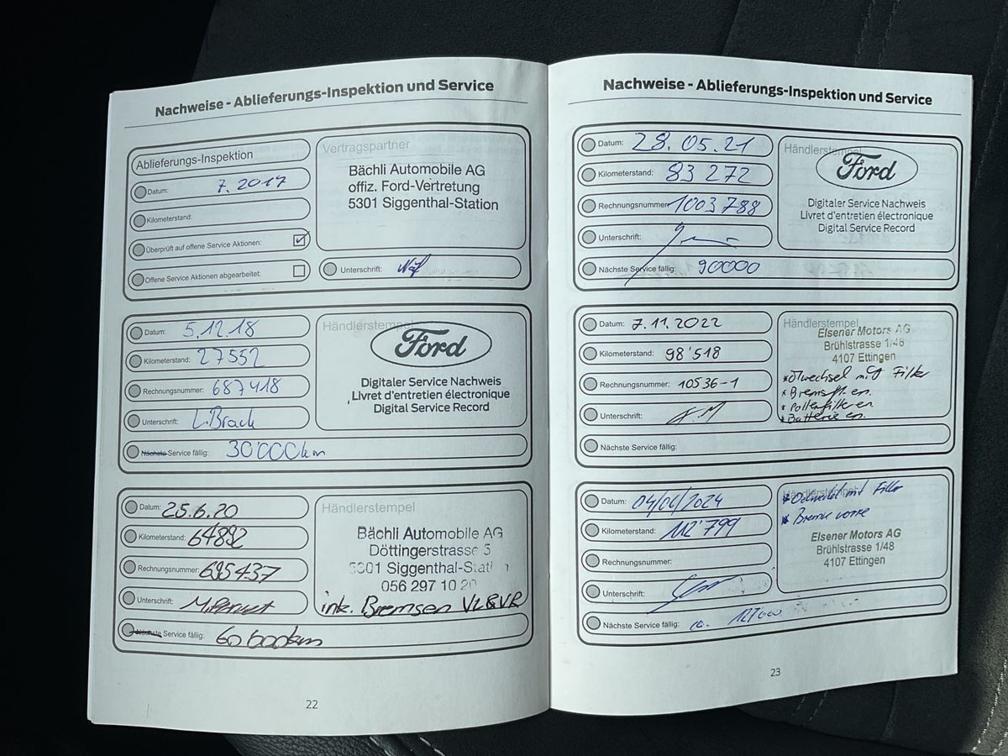 Nachweise - Ablieferungs-Inspektion und Service
Ablieferungs-Inspektion
Datum: 7. 2017
Kilometerstand:
Überprüft auf offene Service Aktionen:
Offene Service Aktionen abgearbeitet:
Vertragspartner
Bächli Automobile AG
offiz. Ford-Vertretung
5301 Siggenthal-Station
Unterschrift:
Datum: 5.12.18
Kilometerstand: 27552
Rechnungsnummer: 687418
Unterschrift: L.Brack
Nächste Service fällig: 30'000km
Händlerstempel
Ford
Digitaler Service Nachweis
Livret d'entretien électronique
Digital Service Record
Datum: 25.6.20
Kilometerstand: 64892
Rechnungsnummer: 695437
Unterschrift:
Nächste Service fällig: 60'000km
Händlerstempel
Bächli Automobile AG
Döttingerstrasse 5
5301 Siggenthal-Stati
056 297 10 20
ink. Bremsen VL&VR
22
Nachweise - Ablieferungs-Inspektion und Service
Datum: 28.05.21
Kilometerstand: 83 272
Rechnungsnummer: 1003788
Unterschrift:
Nächste Service fällig: 90000
Händlerstempel
Ford
Digitaler Service Nachweis
Livret d'entretien électronique
Digital Service Record
Datum: 7.11.2022
Kilometerstand: 98'518
Rechnungsnummer: 10536-1
Unterschrift:
Nächste Service fällig:
Händlerstempel
Elsener Motors AG
Brühlstrasse 1/48
4107 Ettingen
* Ölwechsel mit Filter
* Bremsfl. en.
* Pollenfilter en
* Batterie en.
Datum: 04/06/2024
Kilometerstand: 112'799
Rechnungsnummer:
Unterschrift:
Nächste Service fällig: ca.
Händlerstempel
* Ölwechsel mit Filter
* Bremse vorne
Elsener Motors AG
Brühlstrasse 1/48
4107 Ettingen
23